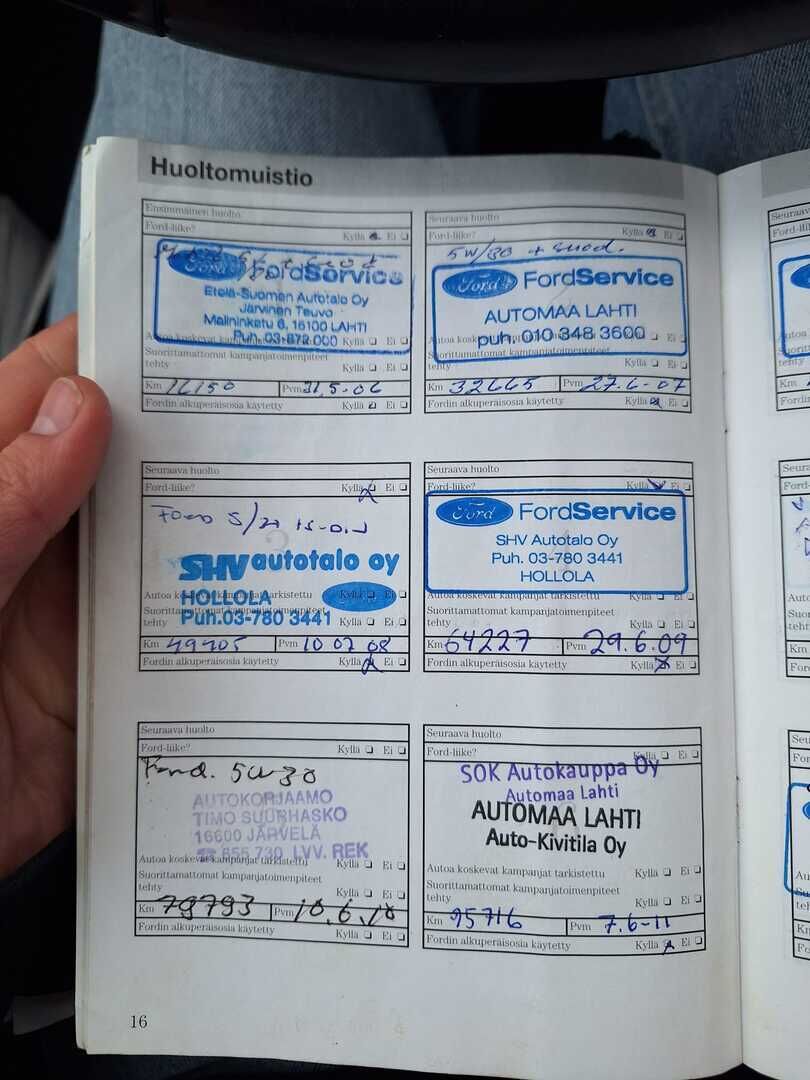 Huoltomuistio
Ensimmäinen huolto
Ford-liike? Kyllä Ei
Ford FordService
Etelä-Suomen Autotalo Oy
Järvinen Teuvo
Malininkatu 6, 15100 LAHTI
Puh. 03-872 000
Autoa koskevat Kyllä Ei
Suorittamattomat kampanjatoimenpiteet
tehty Kyllä Ei
Km 16150 Pvm 31,5-06
Fordin alkuperäisosia käytetty Kyllä Ei
Seuraava huolto
Ford-liike? Kyllä Ei
5W/30 + suod.
Ford FordService
AUTOMAA LAHTI
puh. 010 348 3600
Autoa koskevat Kyllä Ei
Suorittamattomat kampanjatoimenpiteet
tehty Kyllä Ei
Km 32665 Pvm 27.6-07
Fordin alkuperäisosia käytetty Kyllä Ei
Seuraava huolto
Ford-liike? Kyllä Ei
SHV autotalo oy
HOLLOLA Ford
Autoa koskevat kampanjat tarkistettu Kyllä Ei
Suorittamattomat kampanjatoimenpiteet
Puh.03-780 3441
tehty Kyllä Ei
Km 49405 Pvm 10 07 08
Fordin alkuperäisosia käytetty Kyllä Ei
Seuraava huolto
Ford-liike? Kyllä Ei
Ford FordService
SHV Autotalo Oy
Puh. 03-780 3441
HOLLOLA
Autoa koskevat kampanjat tarkistettu Kyllä Ei
Suorittamattomat kampanjatoimenpiteet
tehty Kyllä Ei
Km 64227 Pvm 29.6.09
Fordin alkuperäisosia käytetty Kyllä Ei
Seuraava huolto
Ford-liike? Kyllä Ei
Ford. 5W30
AUTOKORJAAMO
TIMO SUURHASKO
16600 JÄRVELÄ
☎ 855 730, LVV. REK
Autoa koskevat kampanjat tarkistettu Kyllä Ei
Suorittamattomat kampanjatoimenpiteet
tehty Kyllä Ei
Km 79793 Pvm 10.6.10
Fordin alkuperäisosia käytetty Kyllä Ei
Seuraava huolto
Ford-liike? Kyllä Ei
SOK Autokauppa Oy
Automaa Lahti
AUTOMAA LAHTI
Auto-Kivitila Oy
Autoa koskevat kampanjat tarkistettu Kyllä Ei
Suorittamattomat kampanjatoimenpiteet
tehty Kyllä Ei
Km 95716 Pvm 7.6-11
Fordin alkuperäisosia käytetty Kyllä Ei
16